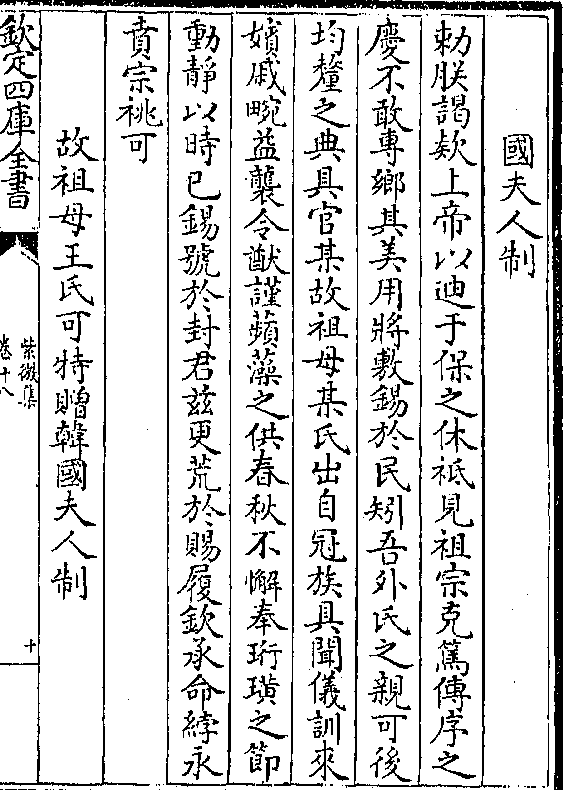 國夫人制
勅朕謁款上帝以迪于保之休祗見祖宗克篤傳序之
慶不敢專鄉其美用將敷錫於民矧吾外氏之親可後
均釐之典具官某故祖母某氏出自冠族具聞儀訓來
嬪戚畹益襲令猷謹蘋藻之供春秋不懈奉珩璜之節
動靜以時已錫號於封君兹更荒於賜履欽承命綍永
賁宗祧可
故祖母王氏可特贈韓國夫人制
欽定四庫全書
紫微集
卷十八
十